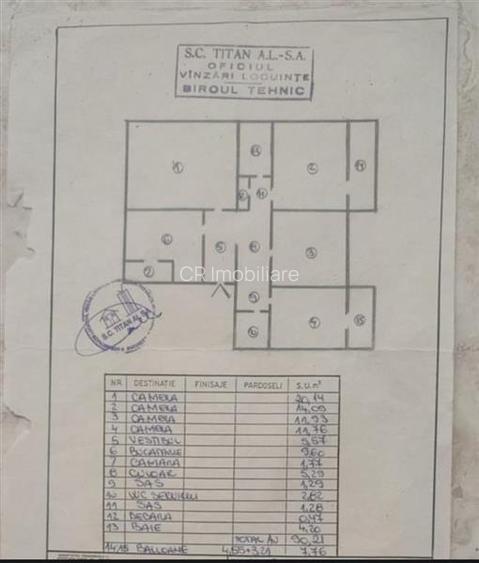 S.C. TITAN A.L.-S.A.
OFICIUL
VÎNZĂRI LOCUINȚE
BIROUL TEHNIC
13
1
2
14
12
11
6
5
8
3
7
CR Imobiliare
S.C. TITAN AL SA
9
10
4
15
NR DESTINAȚIE FINISAJE PARDOSELI S.U.m²
1 CAMERA 20,14
2 CAMERA 14,09
3 CAMERA 11,93
4 CAMERA 11,76
5 VESTIBUL
6 BUCATARIE 9,60
7 CAMARA 1,77
8 CULOAR 5,29
9 SAS 1,29
10 WC SERVICIU 2,82
11 SAS 1,28
12 DEBARA 0,47
13 BAIE 4,20
TOTAL AP. 90,21
14 15 BALCOANE 4,55+3,21 7,76